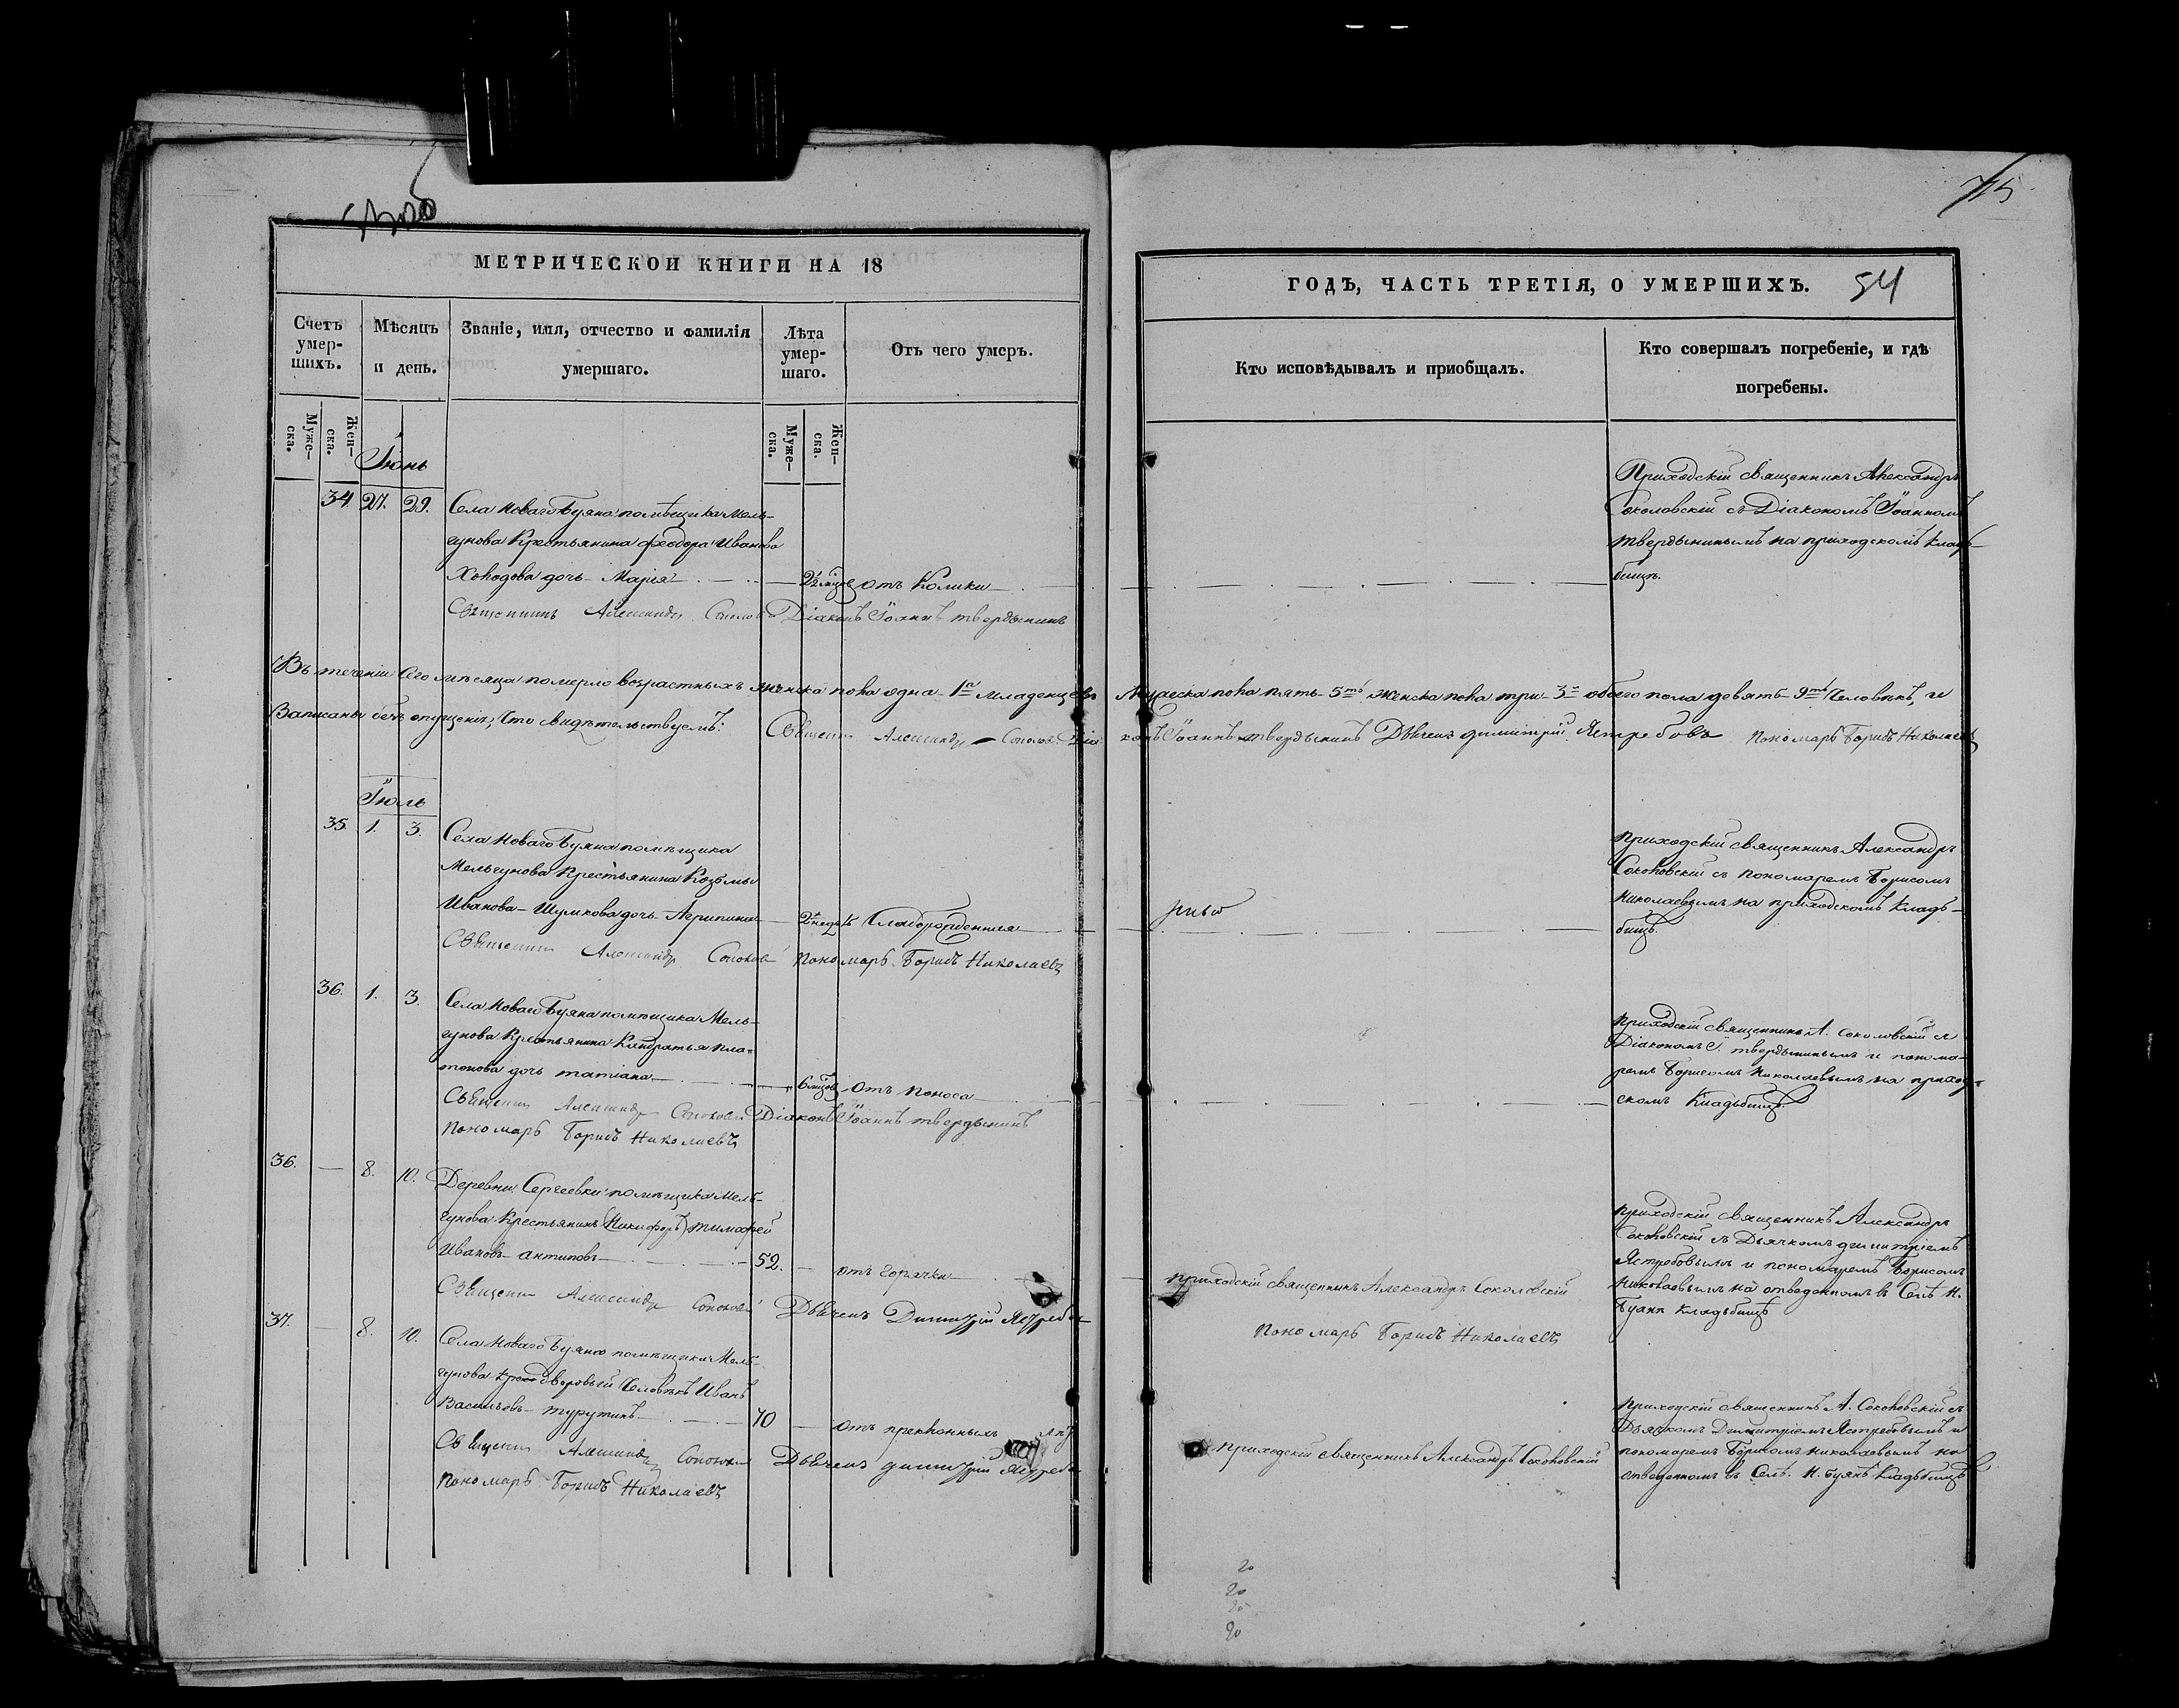 МЕТРИЧЕСКОЙ КНИГИ НА 18
Счетъ умер-
шихъ.
Мѣсяцъ
и день.
Званіе, имя, отчество и фамилія
умершаго.
Лѣта
умер-
шаго.
Отъ чего умеръ.
Муже-
ска.
Жен-
ска.
Муже-
ска.
Жен-
ска.
Іюнь
34. 27. 29. Села Новаго Буяна помѣщика Мель-
гунова Крестьянина Ѳеодора Иванова
Холодова дочь Марія 2½ мцовъ Отъ Колики
Священникъ Александръ Соколовскій Діаконъ Іоаннъ Твердынинъ
Въ теченіи сего мѣсяца померло возрастныхъ женска пола одна 1 младенцевъ
Записаны безъ опущенія, Что свидѣтельствуемъ: Священникъ Александръ Соколов. Діа-
Іюль
35. 1. 3. Села Новаго Буяна помѣщика
Мельгунова Крестьянина Козьмы
Иванова Шумкова дочь Агрипина 2 недѣль Слаборожденная
Священникъ Александръ Соколов Пономарь Борисъ Николаевъ
36. 1. 3. Села Новаго Буяна помѣщика Мель-
гунова Крестьянина Кондратья Пла-
тонова дочь Татіана 6 мцовъ Отъ поноса
Священникъ Александръ Соколов Діаконъ Іоаннъ Твердынинъ
Пономарь Борисъ Николаевъ
36. 8. 10. Деревни Сергеевки помѣщика Мель-
гунова Крестьянинъ (Никифоръ) Тимофей
Ивановъ Антиповъ 52. отъ горячки
Священникъ Александръ Соколов Дьячекъ Димитрій Ястребов
37. 8. 10. Села Новаго Буяна помѣщика Мель-
гунова дворовый человѣкъ Иванъ
Васильевъ Турутинъ 70 Отъ преклонныхъ лѣтъ
Священникъ Александръ Соколов Дьячекъ Димитрій Ястребов
Пономарь Борисъ Николаевъ
54
ГОДЪ, ЧАСТЬ ТРЕТІЯ, О УМЕРШИХЪ.
Кто исповѣдывалъ и приобщалъ.
Кто совершалъ погребеніе, и гдѣ
погребены.
Приходскій Священникъ Александръ
Соколовскій съ Діакономъ Іоанномъ
Твердынинымъ на приходскомъ клад-
бищѣ.
Мужеска пола пять 5 женска пола три 3 обоего пола девять 9 Человѣкъ, и
конъ Іоаннъ Твердынинъ Дьячекъ Димитрій Ястребовъ Пономарь Борисъ Николаевъ
Приходскій священникъ Александръ
Соколовскій съ пономаремъ Борисомъ
Николаевымъ на приходскомъ Кладь-
бищѣ.
Приходскій священникъ А. Соколовскій съ
Діакономъ І. Твердынинымъ и понома-
ремъ Борисомъ Николаевымъ на приход-
скомъ Кладьбищѣ.
Приходскій священникъ Александръ
Соколовскій съ Дьячкомъ Димитріемъ
Ястребовымъ и пономаремъ Борисомъ
Приходскій священникъ Александръ Соколовскій
Николаевымъ на отведенномъ въ Селѣ Н.
Буянѣ кладьбищѣ
Пономарь Борисъ Николаевъ
Приходскій священникъ А. Соколовскій съ
Дьячкомъ Димитріемъ Ястребовымъ и
Приходскій священникъ Александръ Соколовскій
пономаремъ Борисомъ Николаевымъ на
отведенномъ въ Селѣ Н. Буянѣ Кладьбищѣ
20
20
20